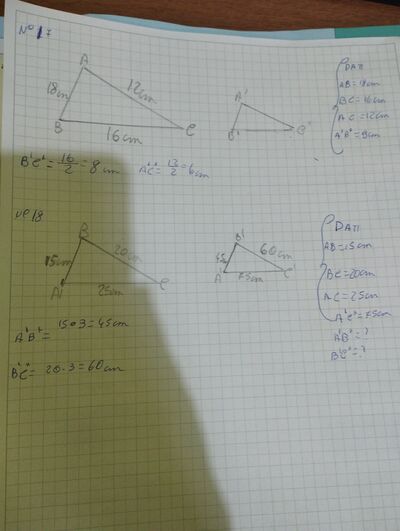 N°17
A
18cm
12cm
B
16cm
C
A'
B'
C'
DATI
AB = 18cm
BC = 16cm
AC = 12cm
A'B' = 9cm
B'C' = 16/2 = 8cm
A'C' = 12/2 = 6cm
N°18
B
15cm
20cm
A
25cm
C
B'
45
60cm
A'
75cm
C'
DATI
AB = 15cm
BC = 20cm
AC = 25cm
A'C' = 75cm
A'B' = ?
B'C' = ?
A'B' = 15·3 = 45cm
B'C' = 20·3 = 60cm